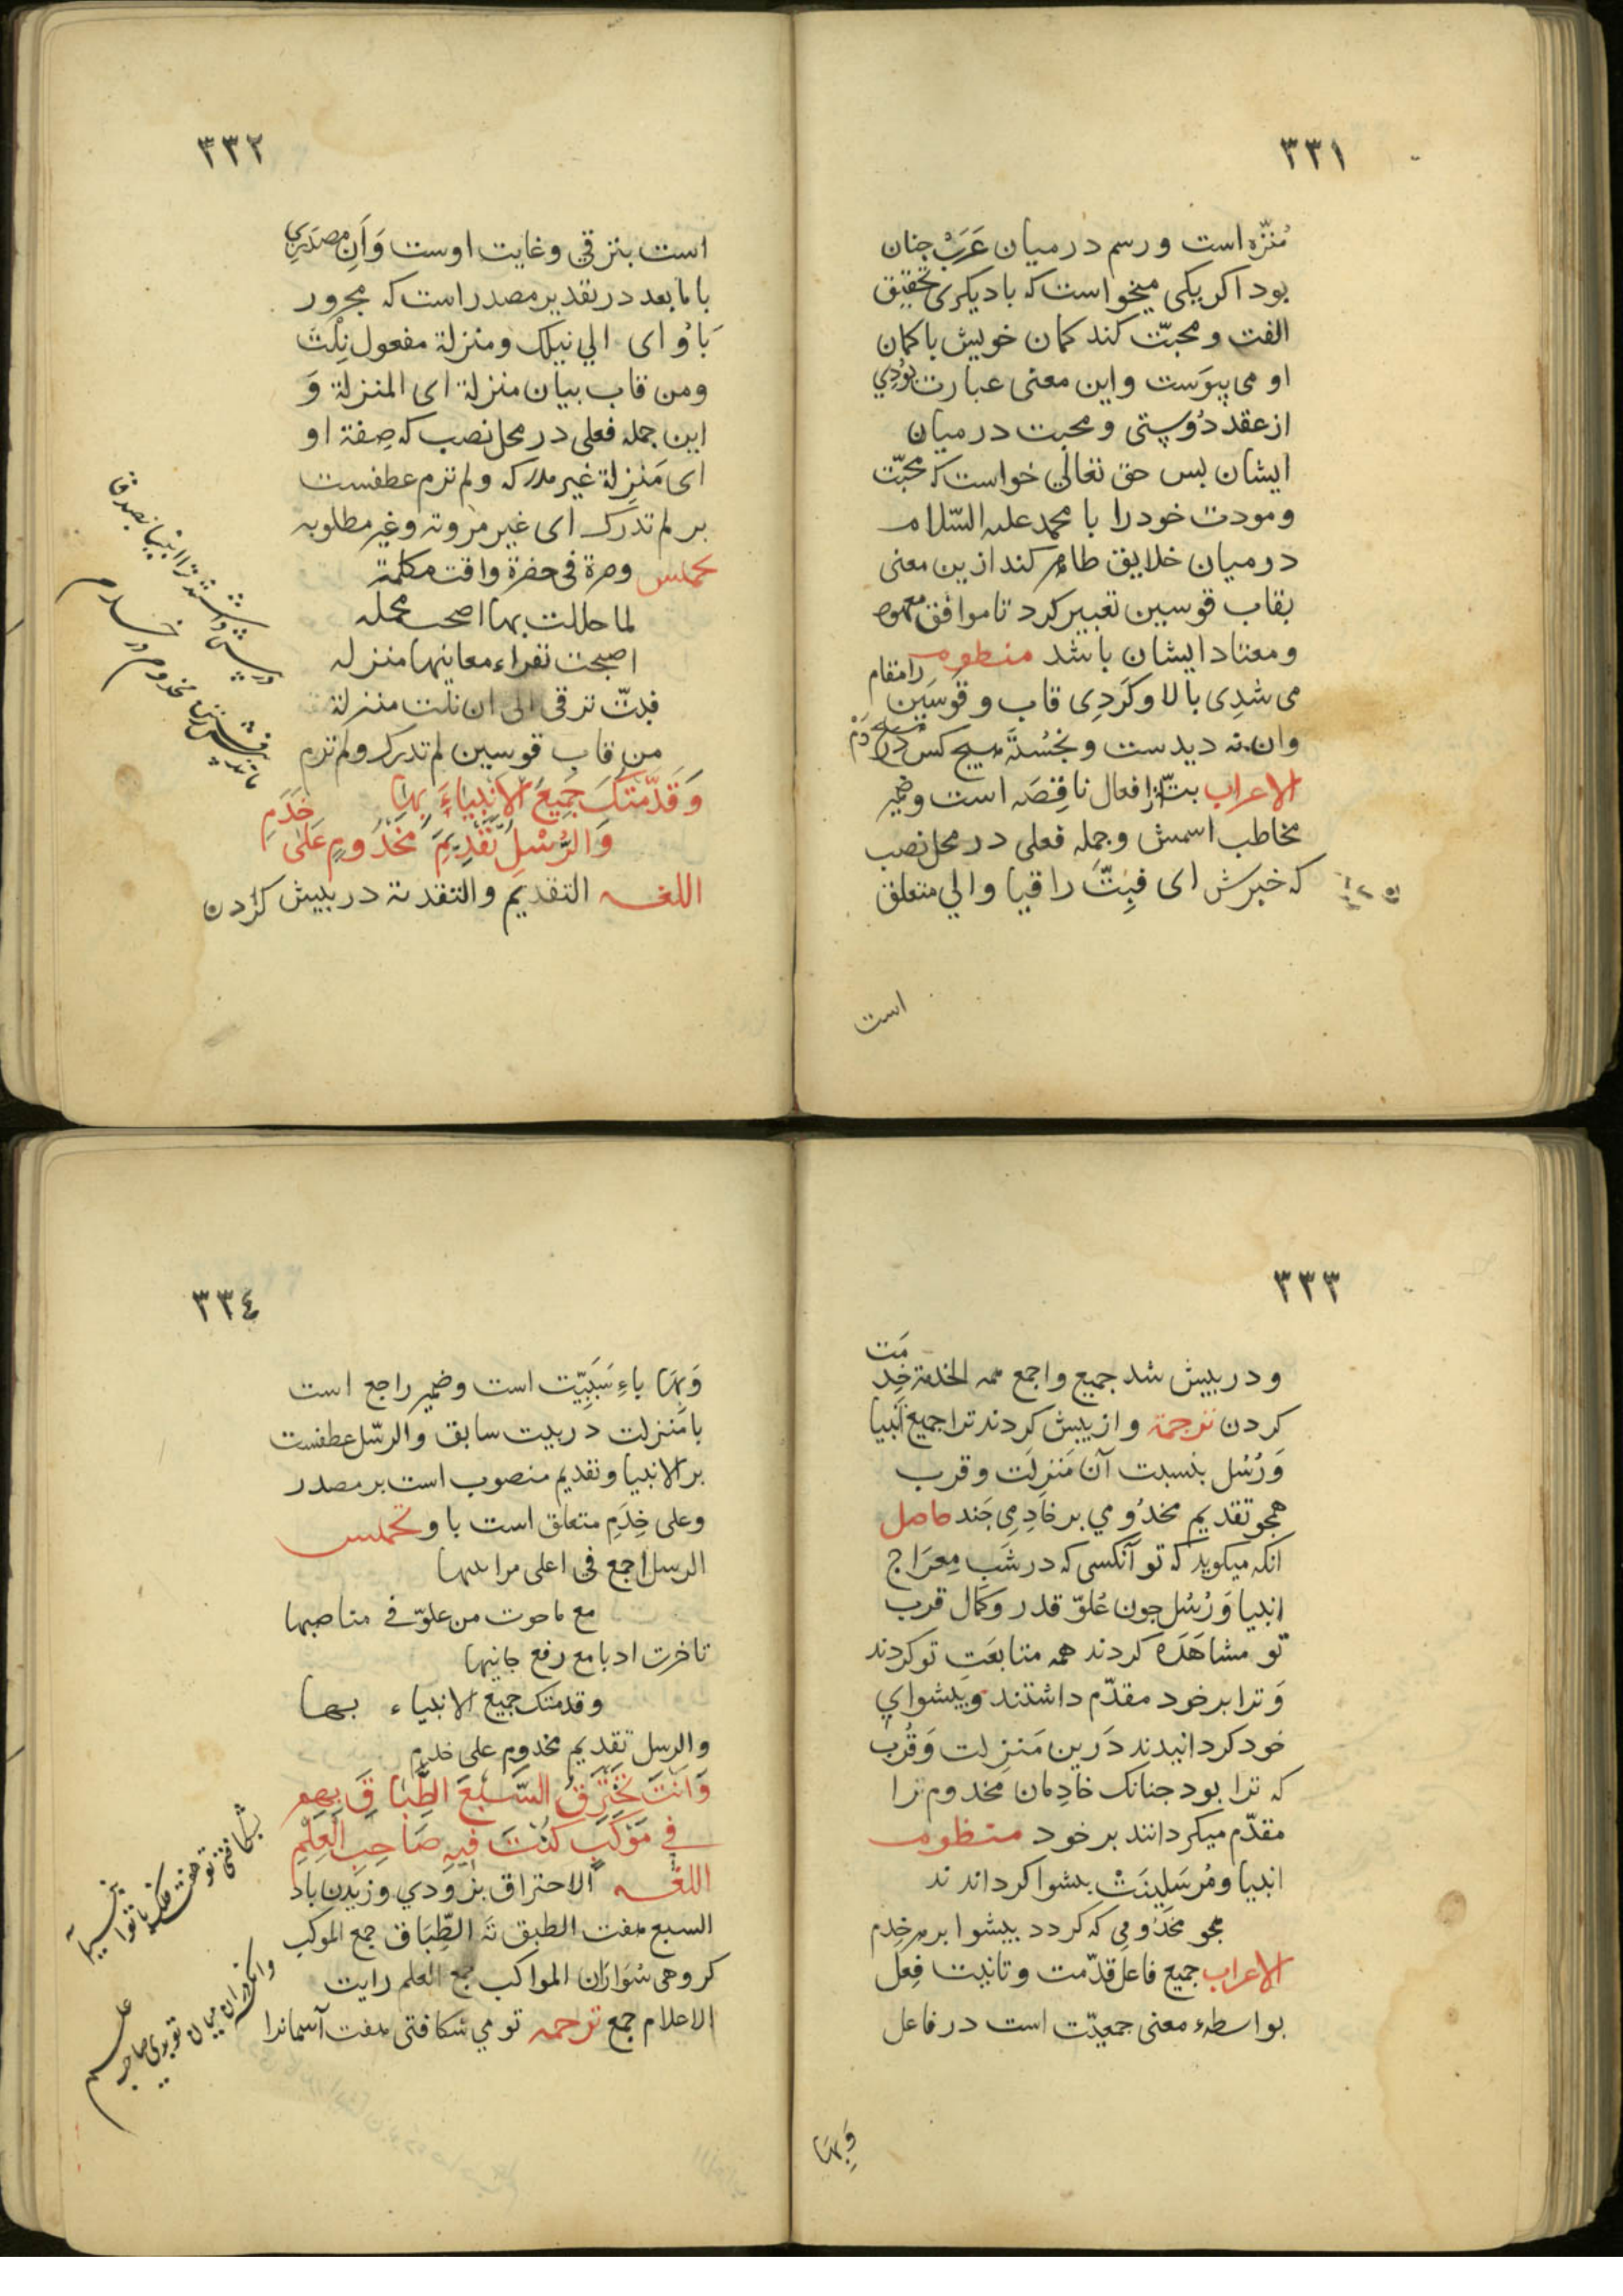 ٣٣١
مُنزّه است و رسم در میان عَرَبْ جنان
بود اکر یکی میخواست که با دیکری تحقیق
الفت و محبّت کند کمان خویش با کمان
او می پیوَست و این معنی عبارت بُودِي
از عقد دُوستی و محبت در میان
ایشان بس حق تعالي خواست که محبّت
و مودت خود را با محمد علیه السّلام
در میان خلایق ظاهر کند ازین معنی
بقاب قوسین تعبیر کرد تا موافق معهود
و معتاد ایشان باشد منظومه
می شدِی بالا و کَردِی قاب و قوسَین را مقام
وان نه دیدست و نجُستَه هیچ کس
الاعراب بتّ از افعال ناقِصَه است و ضمیر
مخاطب اسمش و جمله فعلی در محل نصب
که خبرش ای فبِتَّ راقیا والي متعلق
است
٣٣٢
است بترقي و غایت اوست وَاَنِ مصدَرِي
با ما بعد در تقدیر مصدر است که مجرور
بَاوُ ای الي نیلك و منزلة مفعول نِلْتَ
ومن قاب بیان منزلة ای المنزلة وَ
این جمله فعلی در محل نصب که صِفة او
ای مَنزِلة غیر مدرکه و لم ترم عطفست
بر لم تدرك ای غیر مرومة و غیر مطلوبه
تخمیس ومرة فی حضرة وافت مکلمة
لما حللت بها اصحب محمله
اصبحت تقراء معانیها منزله
فبتّ ترقی الی ان نلت منزلة
من قاب قوسین لم تدرك ولم ترم
وَقَدَّمَتكَ جَمِیعُ الاَنبِیَاءِ بِهَا
وَالرُّسْلِ تَقدِیمَ مَخدُومٍ عَلیٰ خَدَمِ
اللغه التقدیم والتقدمة در بیش کردن
٣٣٣
و در بیش شد جمیع و اجمع همه الخدمة خِدمَت
کردن ترجمة و از بیش کردند ترا جمیع اَنبیا
وَرُسُل بنسبت آن مَنزِلَت و قرب
همجو تقدیم مخدُومي بر خادِمِی جَند حاصل
انکه میکوید که تو آنکسی که در شَبِ مِعرَاج
انبیا وَرُسُل جون عُلوّ قدر و کمَال قرب
تو مشاهَدَه کردند همه متابعَتِ تو کردند
وَترا بر خود مقدّم داشتند و بیشوای
خود کردانیدند دَرین مَنزِلت وَقُرب
که ترا بود جنانک خادِمان مخدوم را
مقدّم میکردانند بر خود منظومه
انبیا و مُرسَلِینَتْ بیشوا کرداندند
همجو مخدُومِی که کردد بیشوا بر خِدم
الاعراب جمیع فاعل قدّمت و تانیث فِعل
بواسطهء معنی جمعیّت است در فاعل
وَبِهَا
٣٣٤
وَبِهَا باءِ سَبَبِیّت است و ضمیر راجع است
با مَنزلت در بیت سابق والرّسل عطفست
بر الانبیا و تقدیم منصوب است بر مصدر
وعلی خِدَمِ متعلق است با و تخمیس
الرسل اجمع فی اعلی مراتبها
مع ما حوت من علوّ فی مناصبها
تاخرت ادبا مع رفع جانبها
وقدمتك جمیع الانبیاء بها
والرسل تقدیم مخدوم علی خدم
وَاَنتَ تَختَرِقُ السَّبْعَ الطِّبَاقَ بِهِم
فی مَوْکَبٍ کُنْتَ فِیهِ صَاحِبَ العَلَمِ
اللغه الاختراق بزودي وزیدن باد
السبع هفت الطبق ته الطِّبَاق جمع الموکب
کروهی سُوَارَان المواکب جمع العلم رایت
الاعلام جمع ترجمه تو می شکافتی هفت آسمانرا